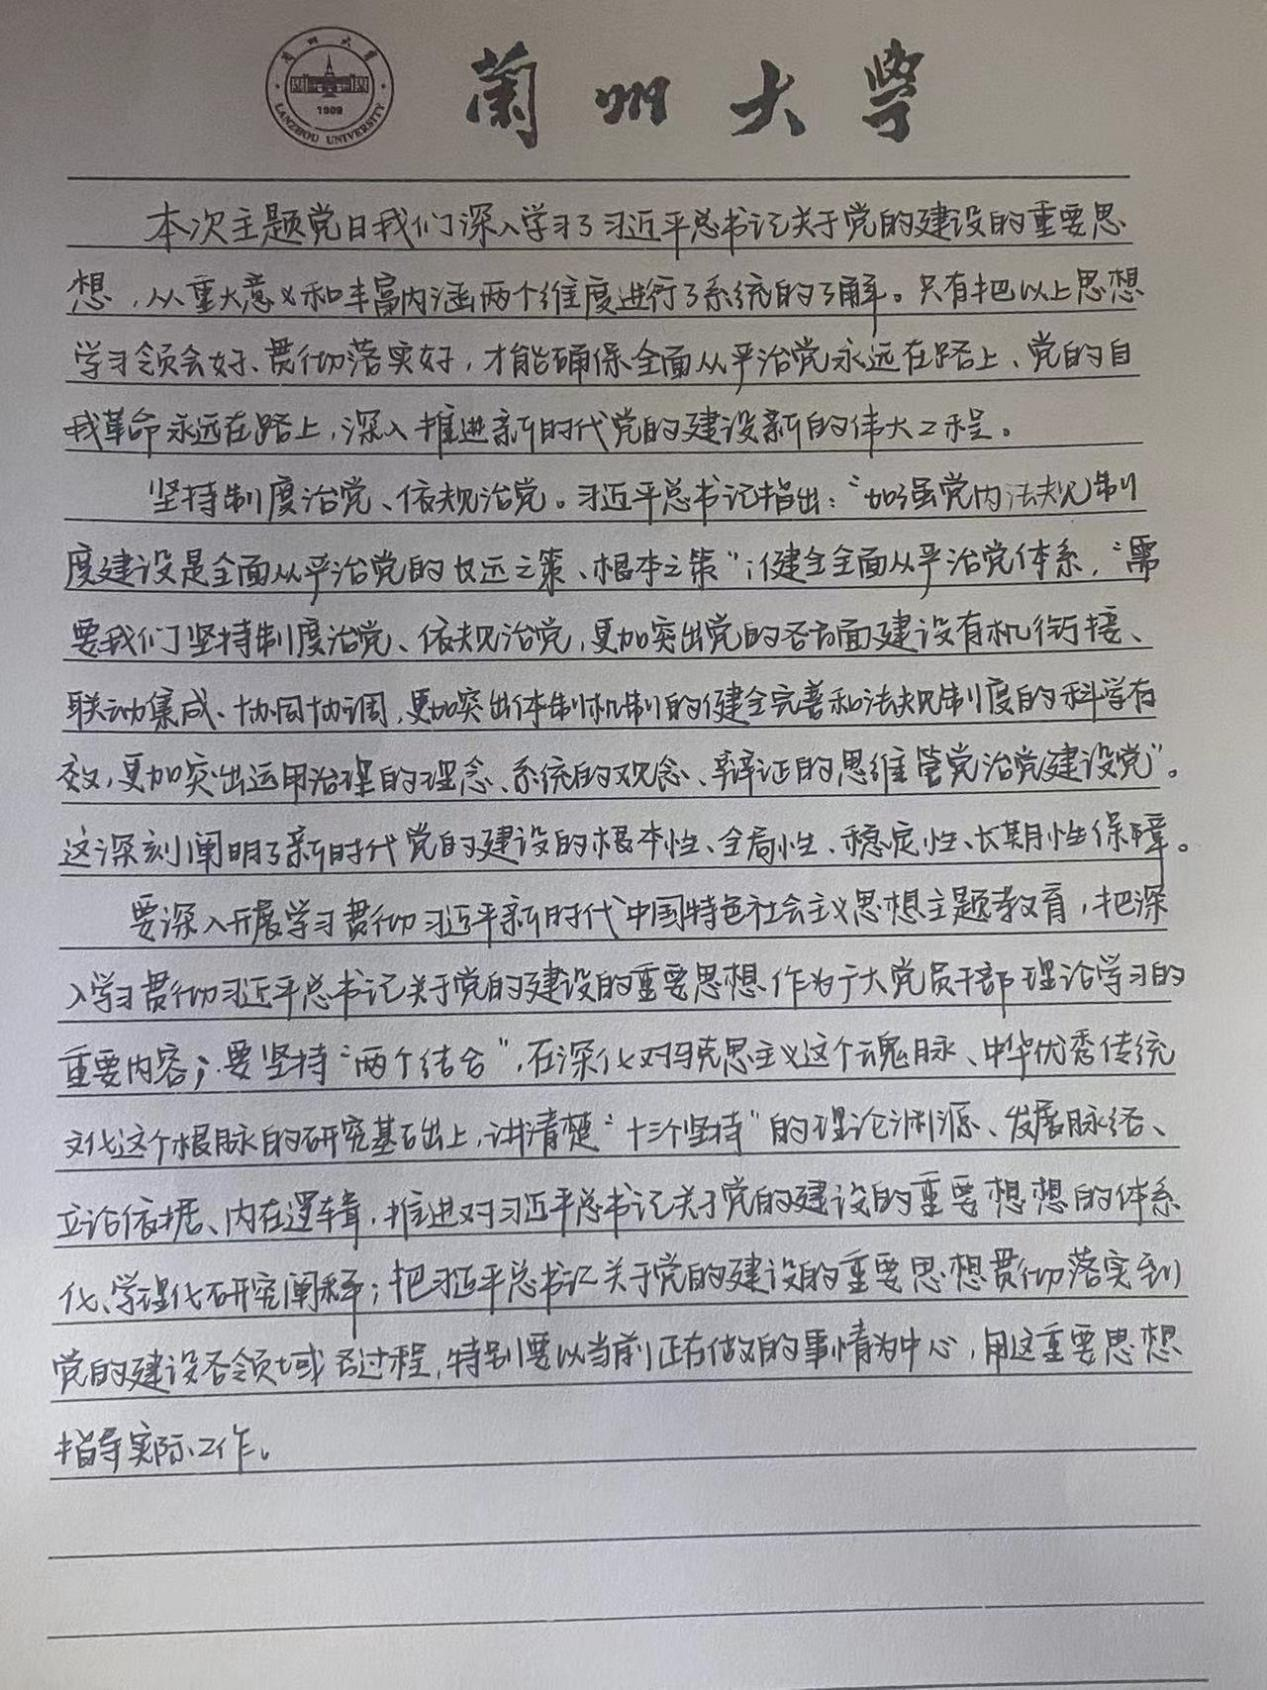 兰州大学
1909
LANZHOU UNIVERSITY
兰州大学
本次主题党日我们深入学习了习近平总书记关于党的建设的重要思
想，从重大意义和丰富内涵两个维度进行了系统的了解。只有把以上思想
学习领会好、贯彻落实好，才能确保全面从严治党永远在路上、党的自
我革命永远在路上，深入推进新时代党的建设新的伟大工程。
坚持制度治党、依规治党。习近平总书记指出：“加强党内法规制
度建设是全面从严治党的长远之策、根本之策”；健全全面从严治党体系，“需
要我们坚持制度治党、依规治党，更加突出党的各方面建设有机衔接、
联动集成、协同协调，更加突出体制机制的健全完善和法规制度的科学有
效，更加突出运用治理的理念、系统的观念、辩证的思维管党治党建设党”。
这深刻阐明了新时代党的建设的根本性、全局性、稳定性、长期性保障。
要深入开展学习贯彻习近平新时代中国特色社会主义思想主题教育，把深
入学习贯彻习近平总书记关于党的建设的重要思想作为广大党员干部理论学习的
重要内容；要坚持“两个结合”，在深化对马克思主义这个魂脉、中华优秀传统
文化这个根脉的研究基础上，讲清楚“十三个坚持”的理论渊源、发展脉络、
立论依据、内在逻辑，推进对习近平总书记关于党的建设的重要想想的体系
化、学理化研究阐释；把习近平总书记关于党的建设的重要思想贯彻落实到
党的建设各领域各过程，特别要以当前正在做的事情为中心，用这重要思想
指导实际工作。